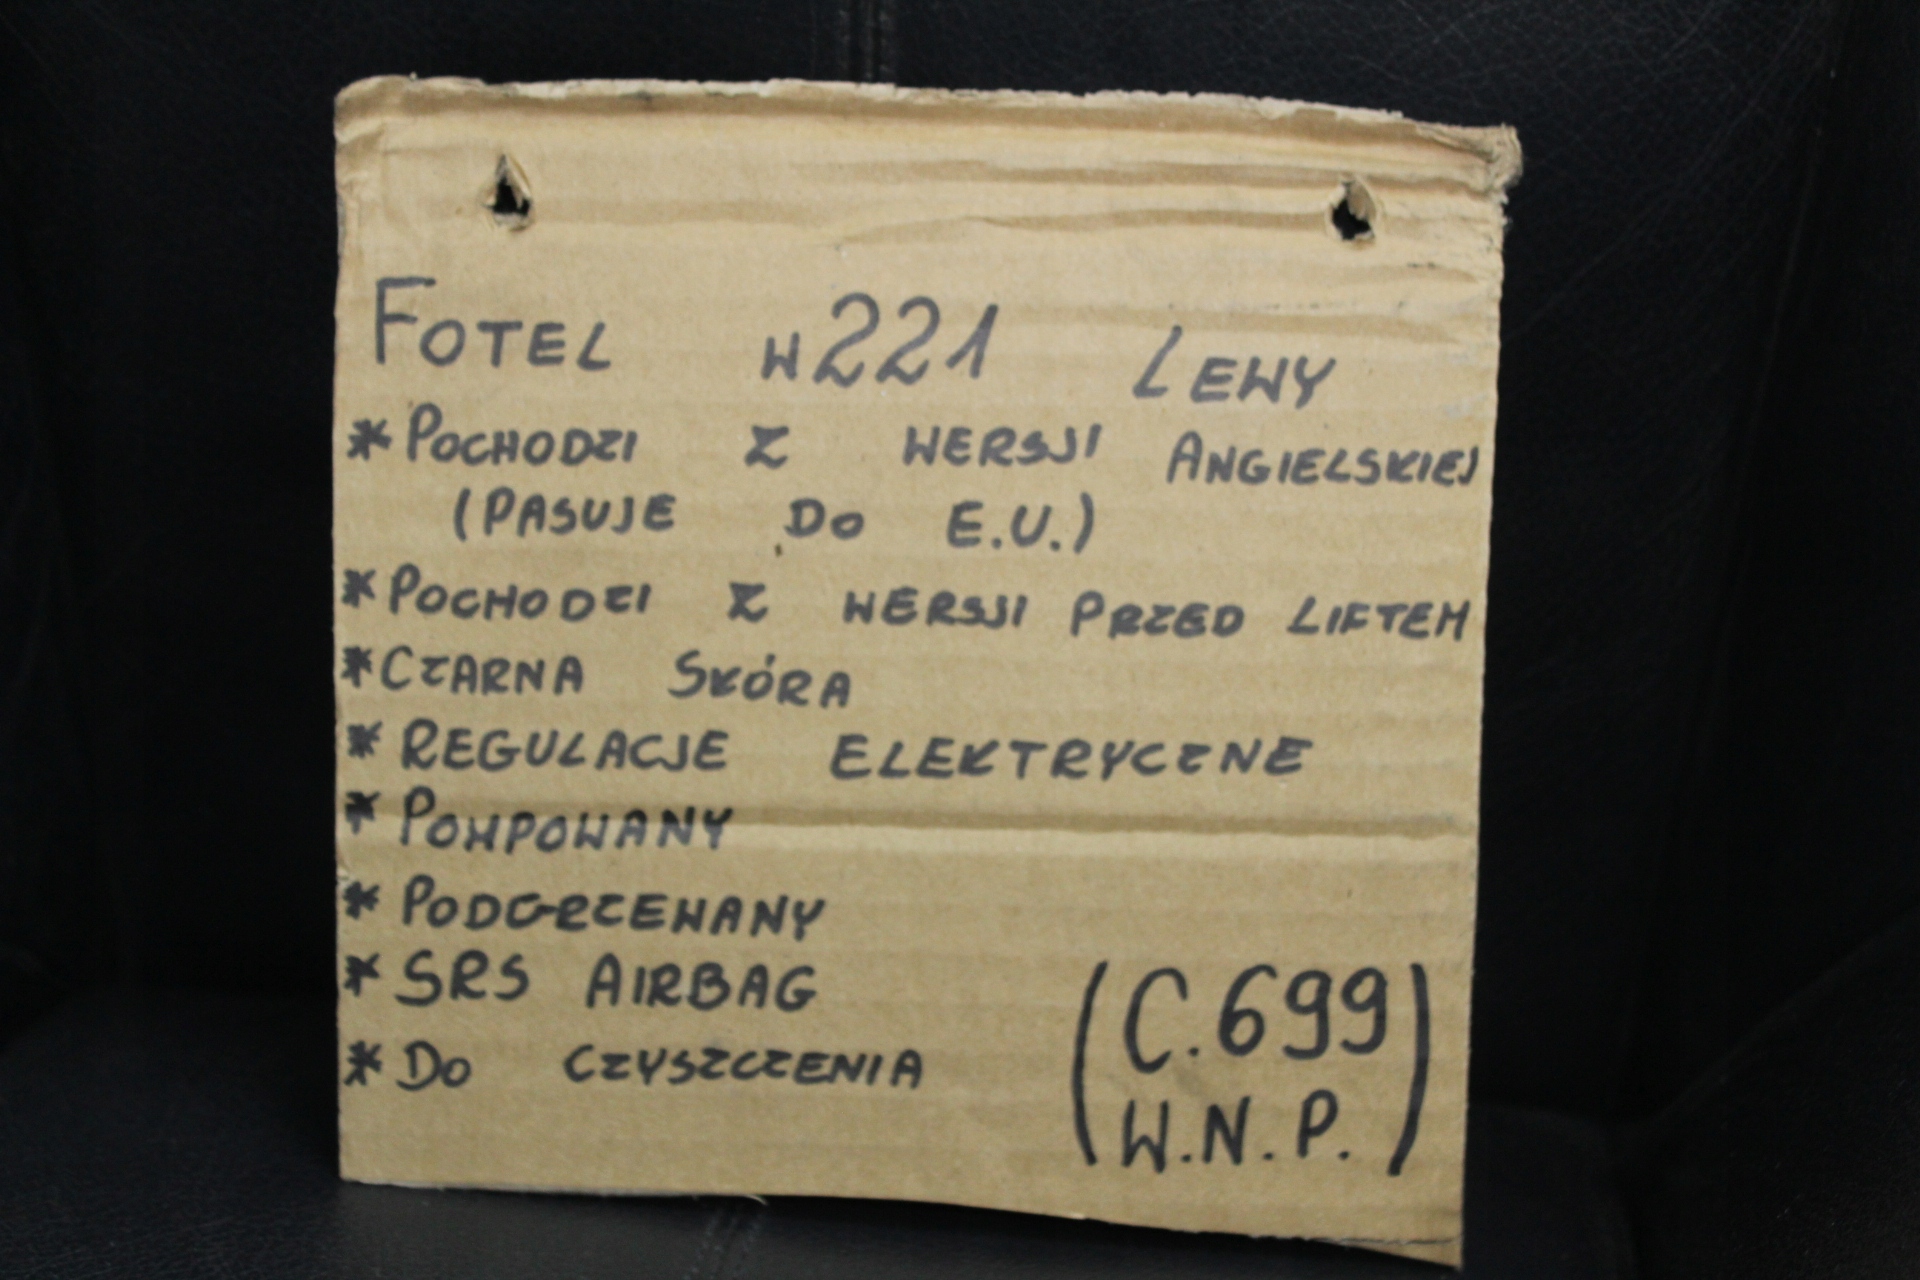 FOTEL W221 LEWY
* POCHODZI Z WERSJI ANGIELSKIEJ
(PASUJE DO E.U.)
* POCHODZI Z WERSJI PRZED LIFTEM
* CZARNA SKÓRA
* REGULACJE ELEKTRYCZNE
* POMPOWANY
* PODGRZEWANY
* SRS AIRBAG
* DO CZYSZCZENIA
(C.699
W.N.P.)